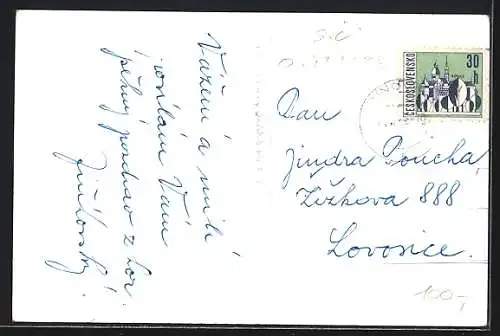 Vážení a milí
posílám Vám
pěkný pozdrav z Lor.
Jiřikovský
ČESKOSLOVENSKO
30
h
Pan
Jindra Poucha
Žižkova 888
Lovosice.
100,-